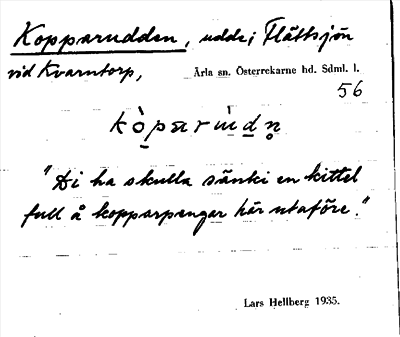 Kopparudden, udde i Flättsjön
vid Kvarntorp, Ärla sn. Österrekarne hd. Sdml. l.
56
"Di ha skulla sänki en kittel
full å kopparpengar här utaföre."
Lars Hellberg 1935.